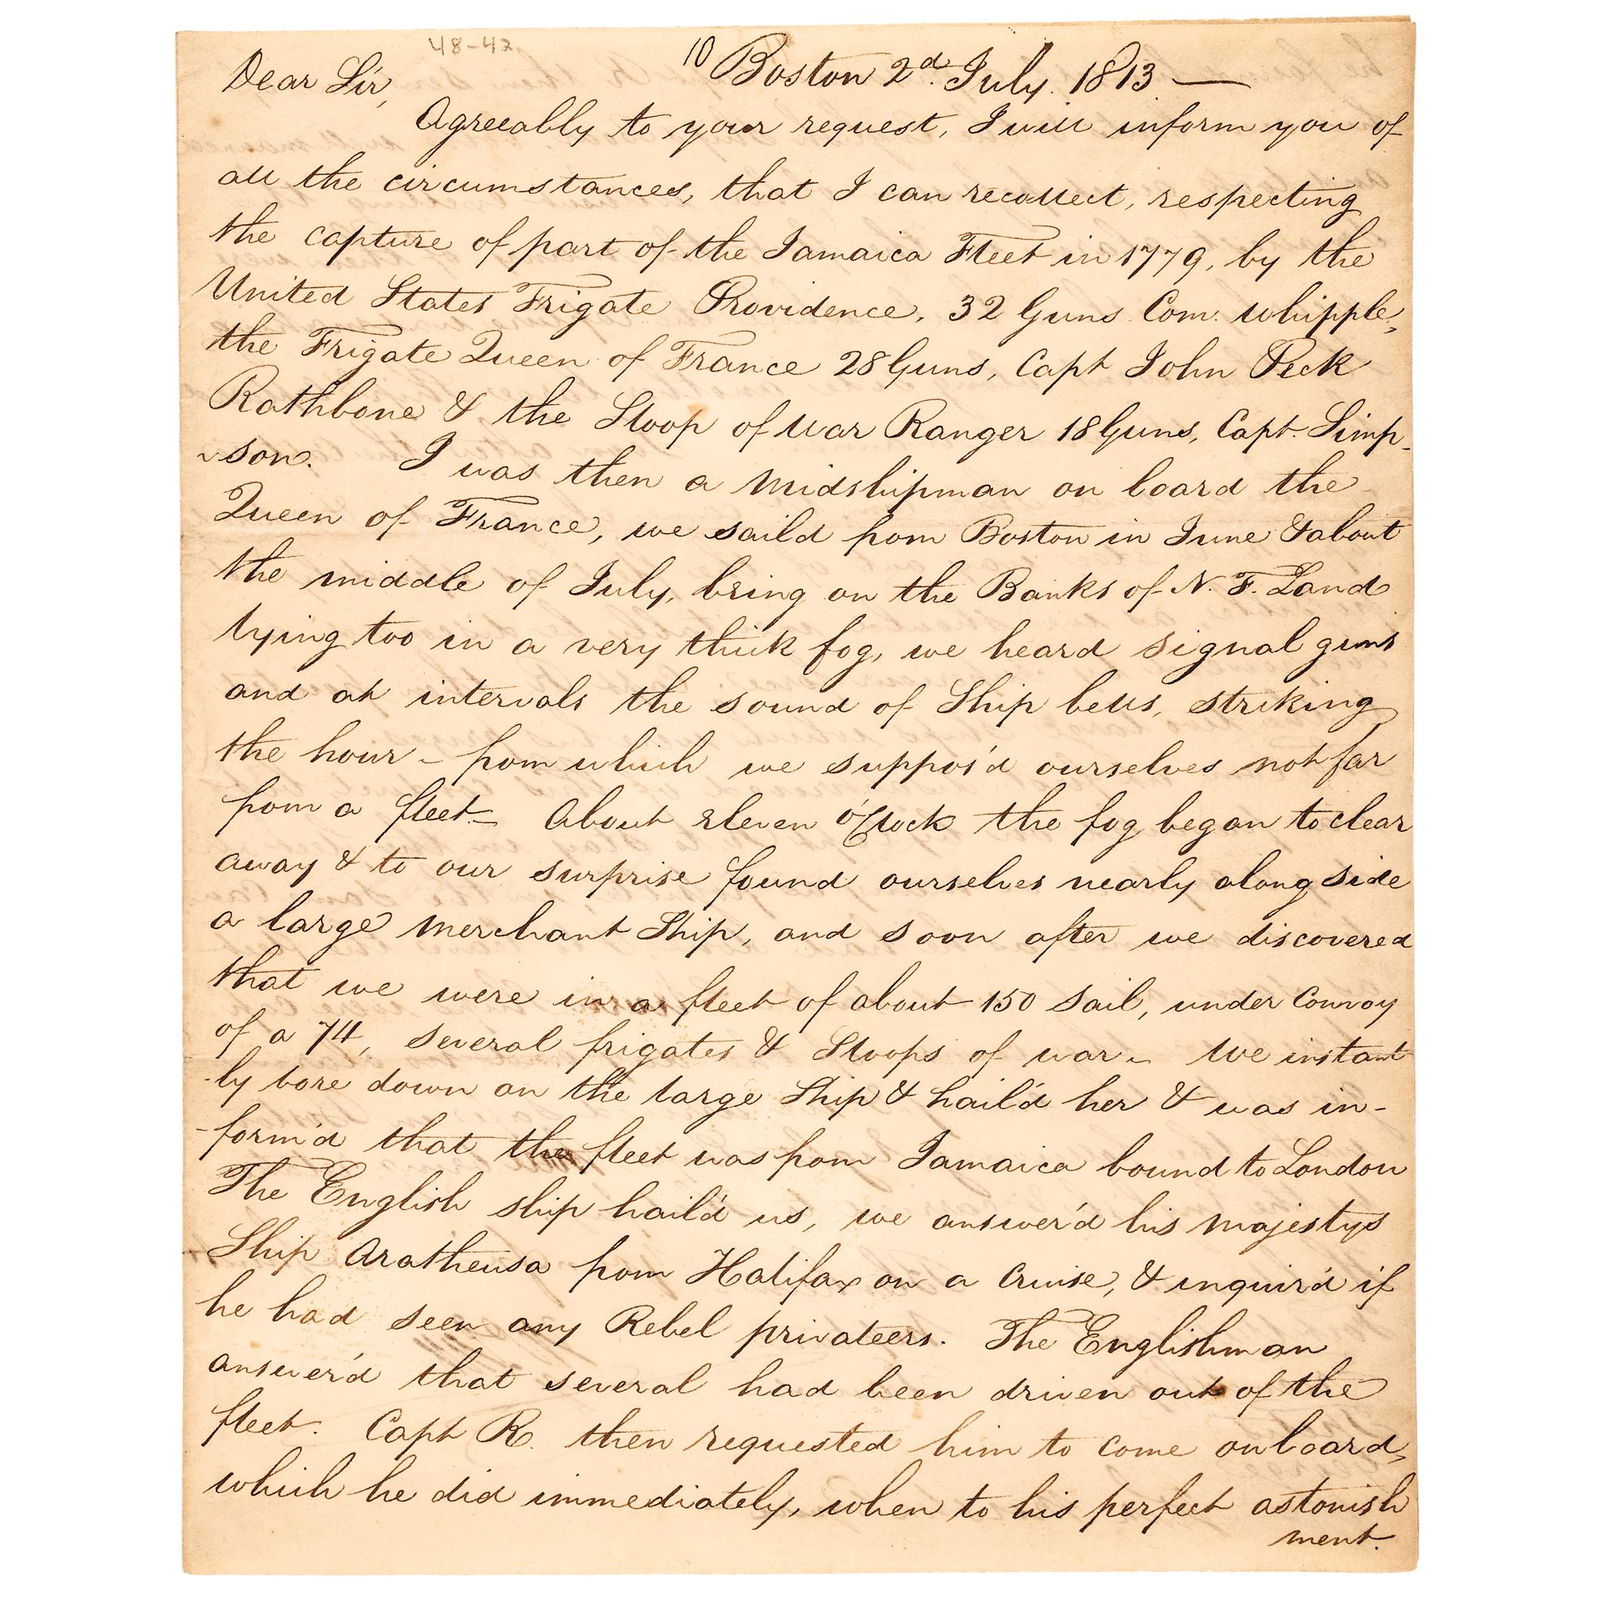 48-42
10 Boston 2d. July. 1813 —
Dear Sir,
Agreeably to your request, I will inform you of
all the circumstances, that I can recollect, respecting
the capture of part of the Jamaica Fleet in 1779, by the
United States Frigate Providence, 32 Guns Com. Whipple,
the Frigate Queen of France 28 Guns, Capt John Peck
Rathbone & the Sloop of War Ranger 18 Guns, Capt. Simp-
-son. I was then a Midshipman on board the
Queen of France, we saild from Boston in June & about
the middle of July, being on the Banks of N. F. Land
lying too in a very thick fog, we heard signal guns
and at intervals the sound of Ship bells, striking
the hour - from which we suppos'd ourselves not far
from a fleet - About eleven o'Clock the fog began to clear
away & to our surprise found ourselves nearly along side
a large Merchant Ship, and soon after we discovered
that we were in a fleet of about 150 sail, under Convoy
of a 74, several frigates & Sloops of war - We instant
-ly bore down on the large Ship & hail'd her & was in-
-form'd that the fleet was from Jamaica bound to London
The English ship hail'd us, we answer'd his Majestys
Ship Aratheusa from Halifax on a Cruise, & inquir'd if
he had seen any Rebel privateers. The Englishman
answer'd that several had been driven out of the
fleet. Capt R. then requested him to come on board,
which he did immediately, when to his perfect astonish
ment.